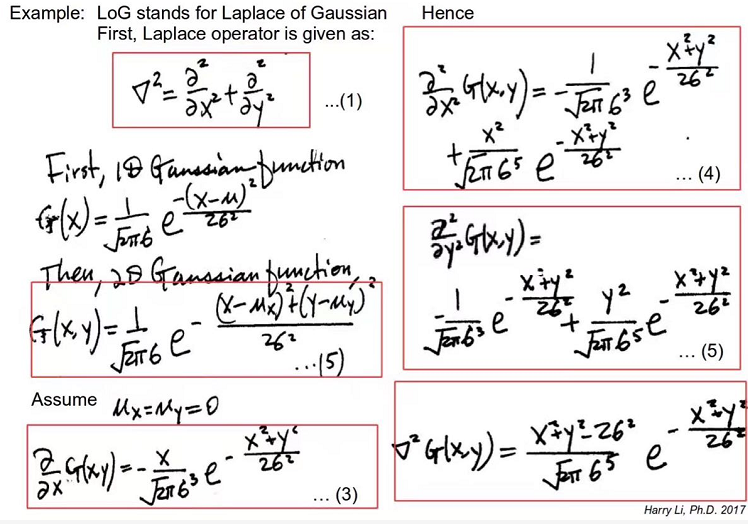 Example: LoG stands for Laplace of Gaussian
First, Laplace operator is given as:
∇² = ∂²/∂x² + ∂²/∂y² ...(1)
First, 1D Gaussian function
G(x) = 1/(√2π σ) e^(-(x-μ)²/2σ²)
Then, 2D Gaussian function,
G(x,y) = 1/(√2π σ) e^(-((x-μx)²+(y-μy)²)/2σ²)
...(5)
Assume μx=μy=0
∂/∂x G(x,y) = - x/(√2π σ³) e^(-(x²+y²)/2σ²)
... (3)
Hence
∂²/∂x² G(x,y) = - 1/(√2π σ³) e^(-(x²+y²)/2σ²)
+ x²/(√2π σ⁵) e^(-(x²+y²)/2σ²)
... (4)
∂²/∂y² G(x,y) =
-1/(√2π σ³) e^(-(x²+y²)/2σ²) + y²/(√2π σ⁵) e^(-(x²+y²)/2σ²)
... (5)
∇² G(x,y) = (x²+y²-2σ²)/(√2π σ⁵) e^(-(x²+y²)/2σ²)
Harry Li, Ph.D. 2017